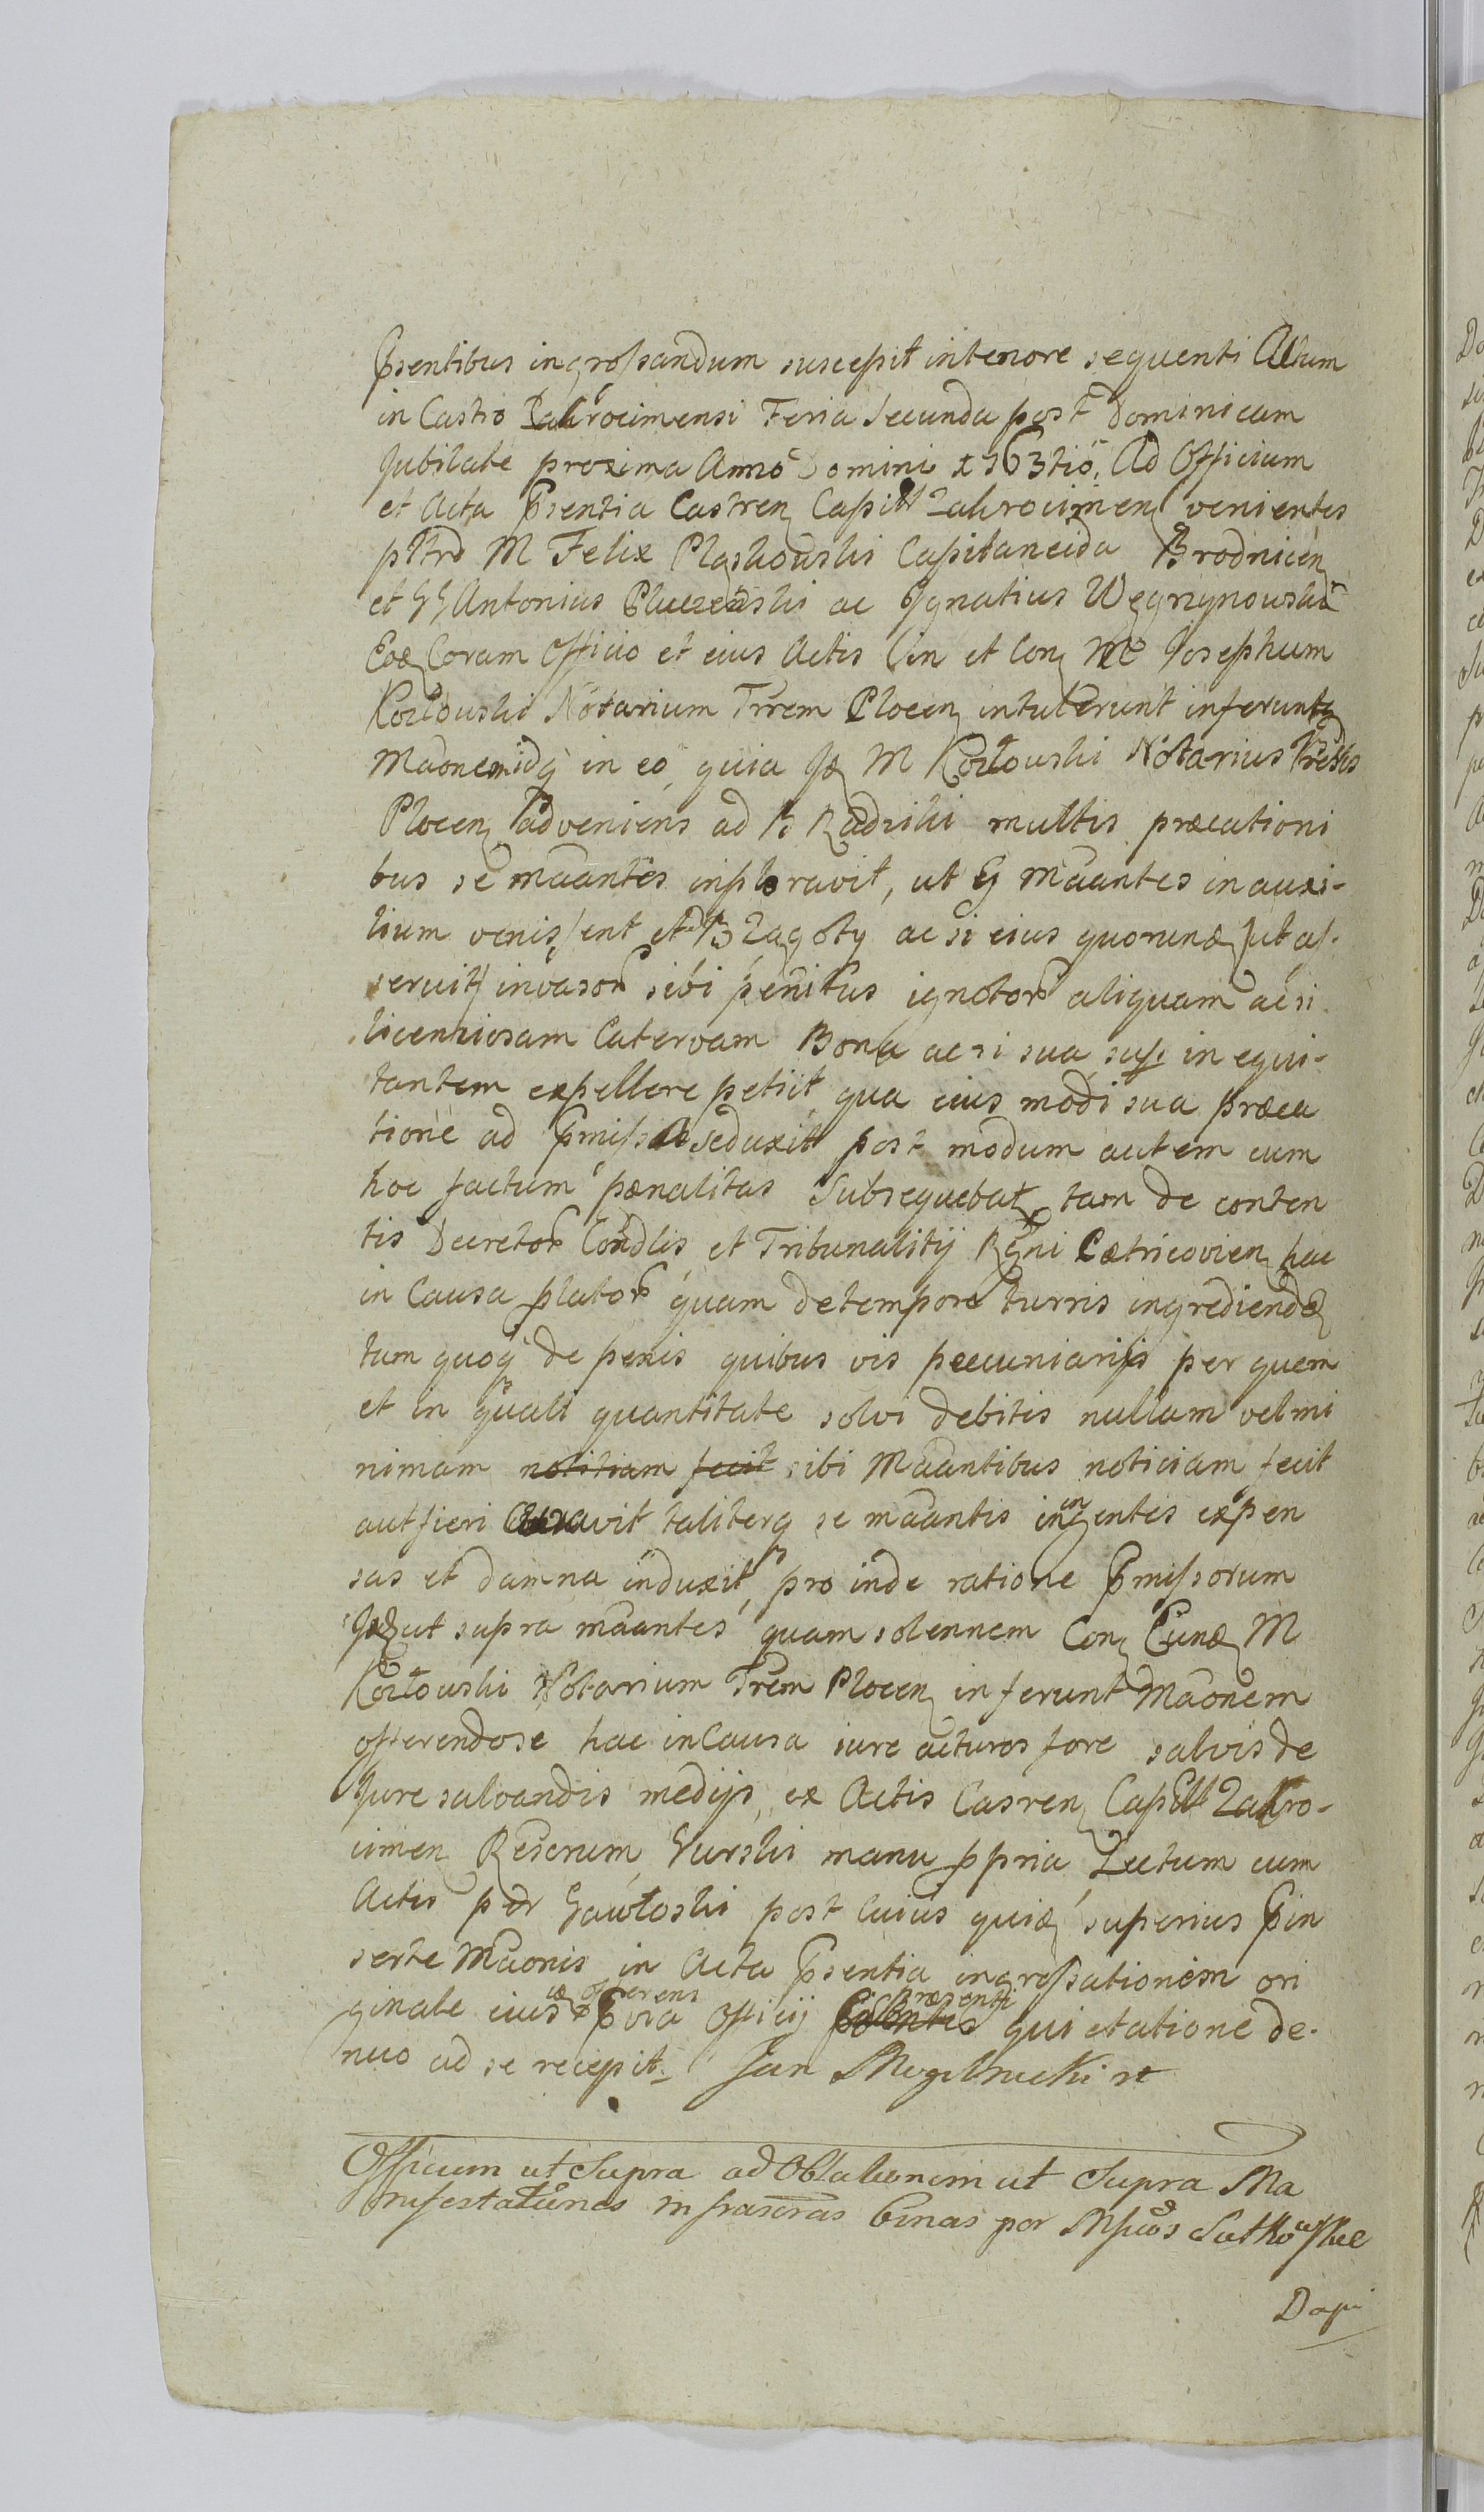 Psentibus ingrossandum suscepit in tenore sequenti Actum
in Castro Zakrocimensi Feria Secunda post Dominicam
Jubilate proxima Anno Domini 1763tio. Ad Officium
et Acta Psentia Castren Capitt Zakrocimen venientes
M Felix Plaskowski Capitaneida Brodnicen
et GG Antonius ac Ignatius Węgrzynowski
Coram Officio et eius Actis Cin et Con M Josephum
Kozłowski Notarium Trrem Plocen intulerunt inferuntq
Maonemq in eo, quia Jd M Kozłowski Notarius Trestris
Plocen adveniens ad B Radziki multis præcationi
bus se maantes inploravit, ut maantes in auxi-
lium venissent et B Zagoty ac si eius quorund ut as-
seruit invasor sibi penitus ignotor aliquam acsi
licentiosam Catervam Bona ac si sua in equi-
tantem expellere petiit, qua eius modi sua præca
tione ad Pmissa seduxit post modum autem cum
hoc factum pænalitas Subsequebat tam de conten
tis Decretor Condlis et Tribunalitij Rgni Petricovien hac
in Causa plator quam de tempore turris ingrediendæ
tum quoq de penis quibus vis pecuniarijs per quem
et in quali quantitate solvi debitis nullam vel mi
nimam notitiam fecit sibi Maantibus noticiam fecit
aut fieri curavit taliterq se maantis in ingentes expen
sas et damna induxit, pro inde ratione Pmissorum
Jd ut supra maantes quam solennem Con Eund M
Kozłowski Notarium Trem Plocen inferunt Maonem
offerendo se hac in Causa iure acturos fore salvis de
Jure salvandis medijs, ex Actis Casren Capitt Zakro-
cimen Rescrum, Gurski manu ppria Lectum cum
Actis per Gawłoski post cuius quid superius Pin
serte Maonis in Acta Psentia ingrossationem ori
ginale eius id offerens Officij Præsenti quietatione de-
nuo ad se recepit. Jan Mogilnicki
Officium ut Supra ad Oblationem ut Supra Ma
nifestationes infrascras binas per Mficos Sutkowskie
Dapi